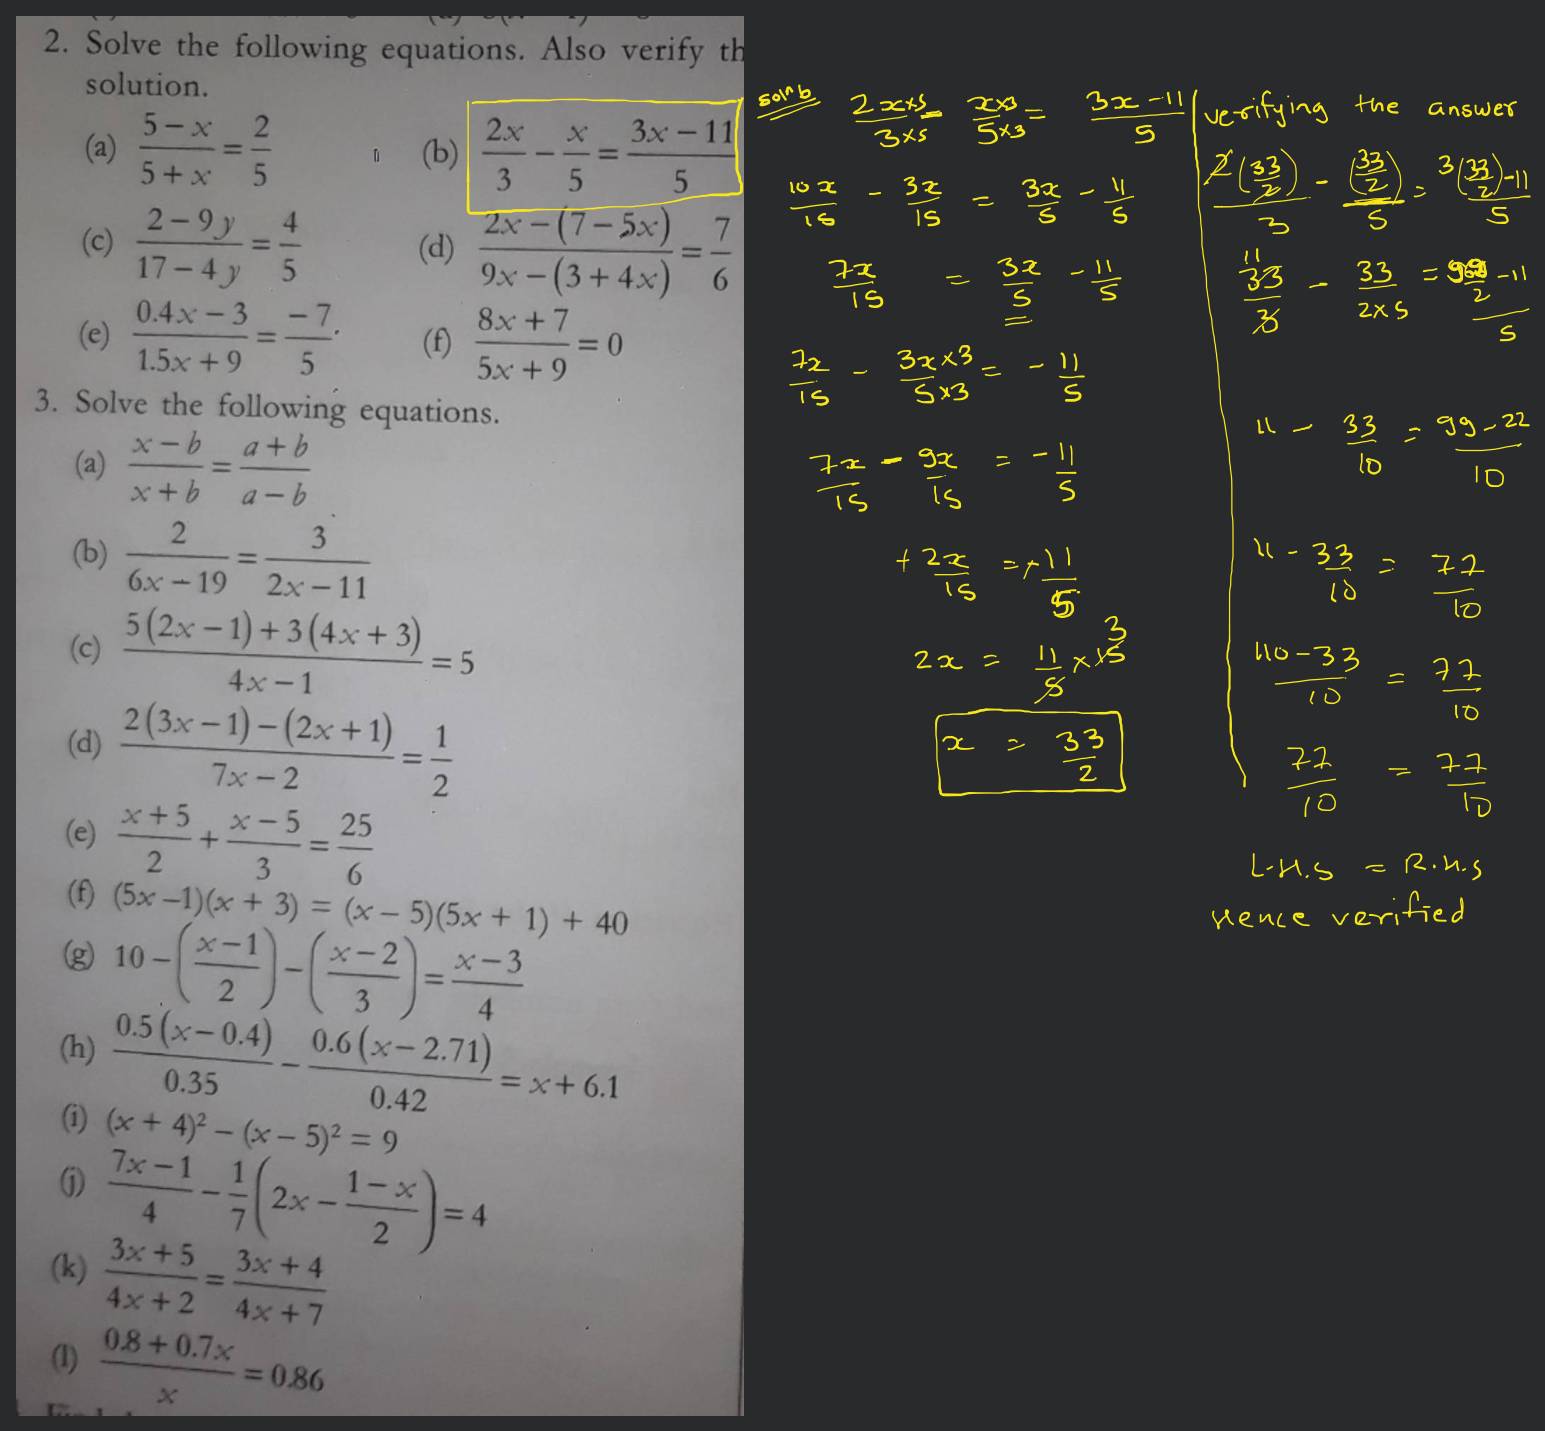 2. Solve the following equations. Also verify th
solution.
(a) (5 − x)/(5 + x) = 2/5
(b) 2x/3 − x/5 = (3x − 11)/5
(c) (2 − 9y)/(17 − 4y) = 4/5
(d) (2x − (7 − 5x))/(9x − (3 + 4x)) = 7/6
(e) (0.4x − 3)/(1.5x + 9) = −7/5
(f) (8x + 7)/(5x + 9) = 0
3. Solve the following equations.
(a) (x − b)/(x + b) = (a + b)/(a − b)
(b) 2/(6x − 19) = 3/(2x − 11)
(c) (5(2x − 1) + 3(4x + 3))/(4x − 1) = 5
(d) (2(3x − 1) − (2x + 1))/(7x − 2) = 1/2
(e) (x + 5)/2 + (x − 5)/3 = 25/6
(f) (5x − 1)(x + 3) = (x − 5)(5x + 1) + 40
(g) 10 − ((x − 1)/2) − ((x − 2)/3) = (x − 3)/4
(h) 0.5(x − 0.4)/0.35 − 0.6(x − 2.71)/0.42 = x + 6.1
(i) (x + 4)² − (x − 5)² = 9
(j) (7x − 1)/4 − 1/7(2x − (1 − x)/2) = 4
(k) (3x + 5)/(4x + 2) = (3x + 4)/(4x + 7)
(l) (0.8 + 0.7x)/x = 0.86
solⁿ b
(2x×5)/(3×5) − (x×3)/(5×3) = (3x − 11)/5
10x/15 − 3x/15 = 3x/5 − 11/5
7x/15 = 3x/5 − 11/5
7x/15 − (3x×3)/(5×3) = −11/5
7x/15 − 9x/15 = −11/5
+2x/15 = +11/5
2x = 11/5 × 15 3
x = 33/2
verifying the answer
2(33/2)/3 − (33/2)/5 = (3(33/2) − 11)/5
11 33/3 − 33/(2×5) = (99/2 − 11)/5
11 − 33/10 = (99 − 22)/10
11 − 33/10 = 77/10
(110 − 33)/10 = 77/10
77/10 = 77/10
L.H.S = R.H.S
Hence verified